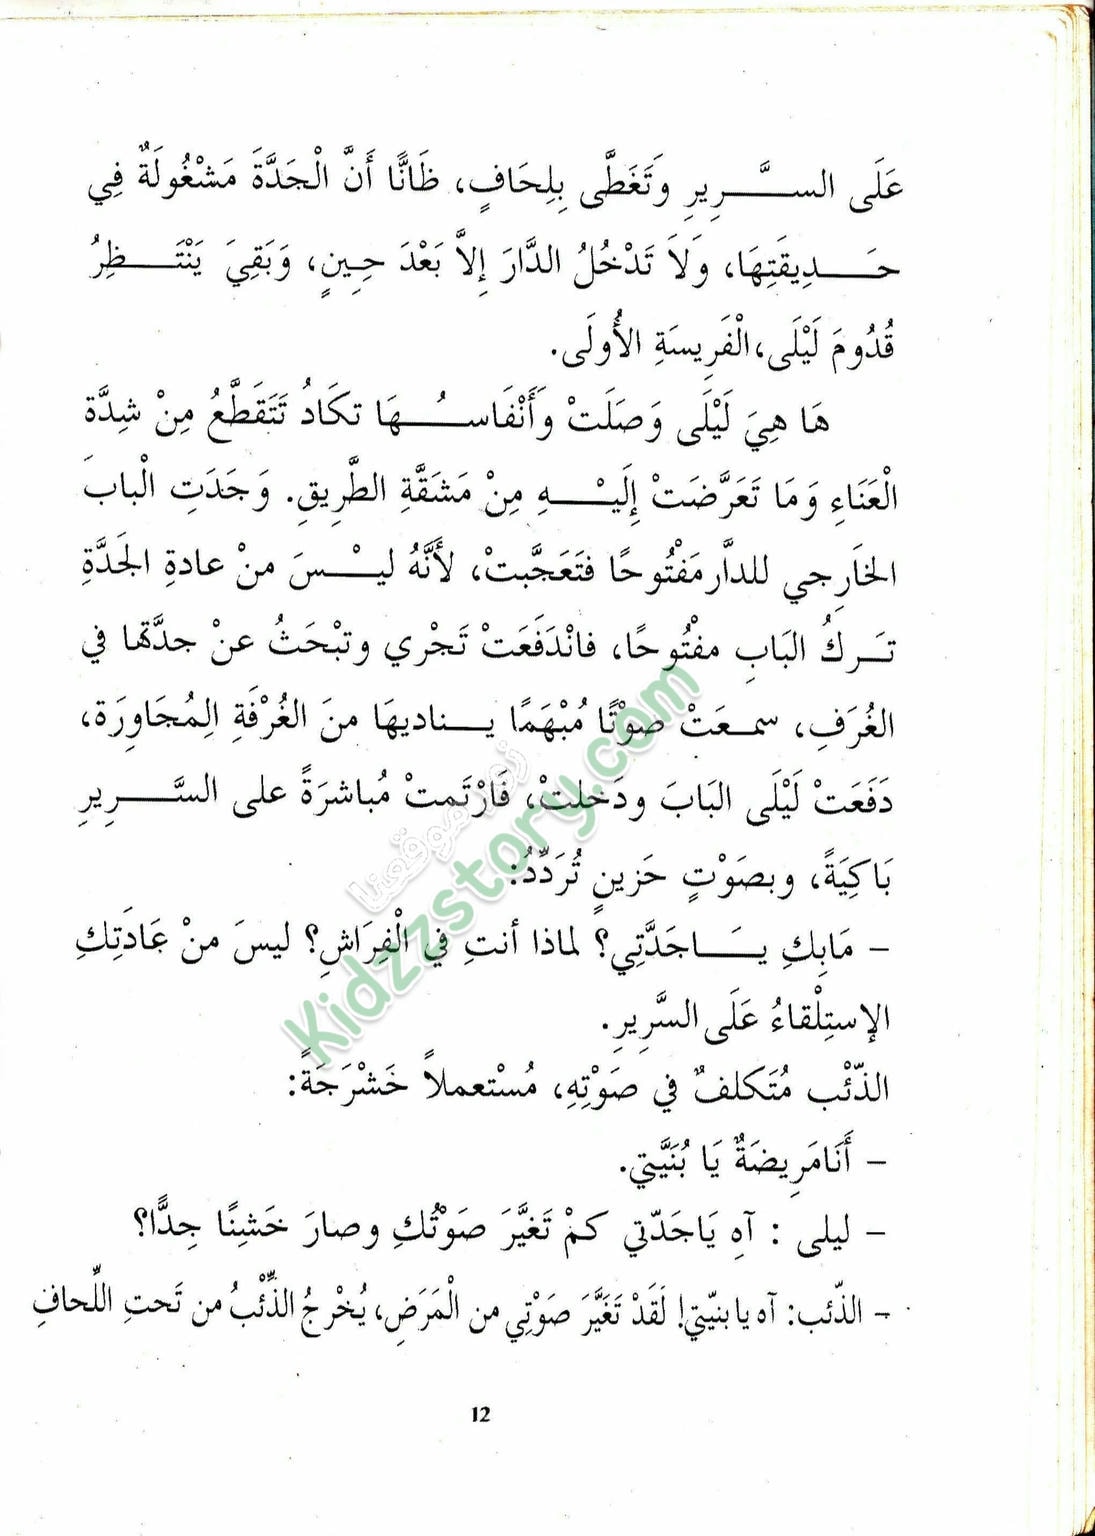 عَلَى السَّرِيرِ وَتَغَطَّى بِلِحَافٍ، ظَانًّا أَنَّ الْجَدَّةَ مَشْغُولَةٌ فِي
حَدِيقَتِهَا، وَلاَ تَدْخُلُ الدَّارَ إِلاَّ بَعْدَ حِينٍ، وَبَقِيَ يَنْتَظِرُ
قُدُومَ لَيْلَى،الْفَرِيسَةِ الأُولَى.
هَا هِيَ لَيْلَى وَصَلَتْ وَأَنْفَاسُهَا تكَادُ تَتَقَطَّعُ مِنْ شِدَّة
الْعَنَاءِ وَمَا تَعَرَّضَتْ إِلَيْهِ مِنْ مَشَقَّةِ الطَّرِيقِ. وَجَدَتِ الْبابَ
الخَارِجي للدَّار مَفْتُوحًا فتَعَجَّبتْ، لأَنَّهُ ليْسَ منْ عادةِ الجَدَّةِ
تَركُ البَابِ مفْتُوحًا، فانْدَفَعَتْ تَجْري وتبْحَثُ عنْ جدَّتها في
الغُرَفِ، سمعَتْ صوْتًا مُبْهَمًا يناديهَا منَ الغُرْفَةِ المُجَاوِرَة،
دَفَعَتْ لَيْلَى البَابَ ودَخلتْ، فَارْتَمتْ مُباشرَةً على السَّرِيرِ
بَاكِيَةً، وبصَوْتٍ حَزينٍ تُرَدِّدُ:
- مَابِكِ يَاجَدَّتِي؟ لماذا أنتِ في الْفِرَاشِ؟ ليسَ منْ عَادَتِكِ
الإستِلْقاءُ عَلَى السَّرِيرِ.
الذّئْب مُتَكلفٌ في صَوْتِهِ، مُسْتعملاً خَشْرَجَةً:
- أَنَامَرِيضَةٌ يَا بُنَيَّتي.
- ليلى : آهِ يَاجَدّتي كمْ تَغيَّرَ صَوْتُكِ وصارَ خَشِنًا جِدًّا؟
- الذّئب: آه يا بنيّتي! لَقَدْ تَغَيَّرَ صَوْتِي من الْمَرَضِ، يُخْرجُ الذِّئْبُ من تَحتِ اللِّحافِ
12
زوروا موقعنا
Kidzzstory.com